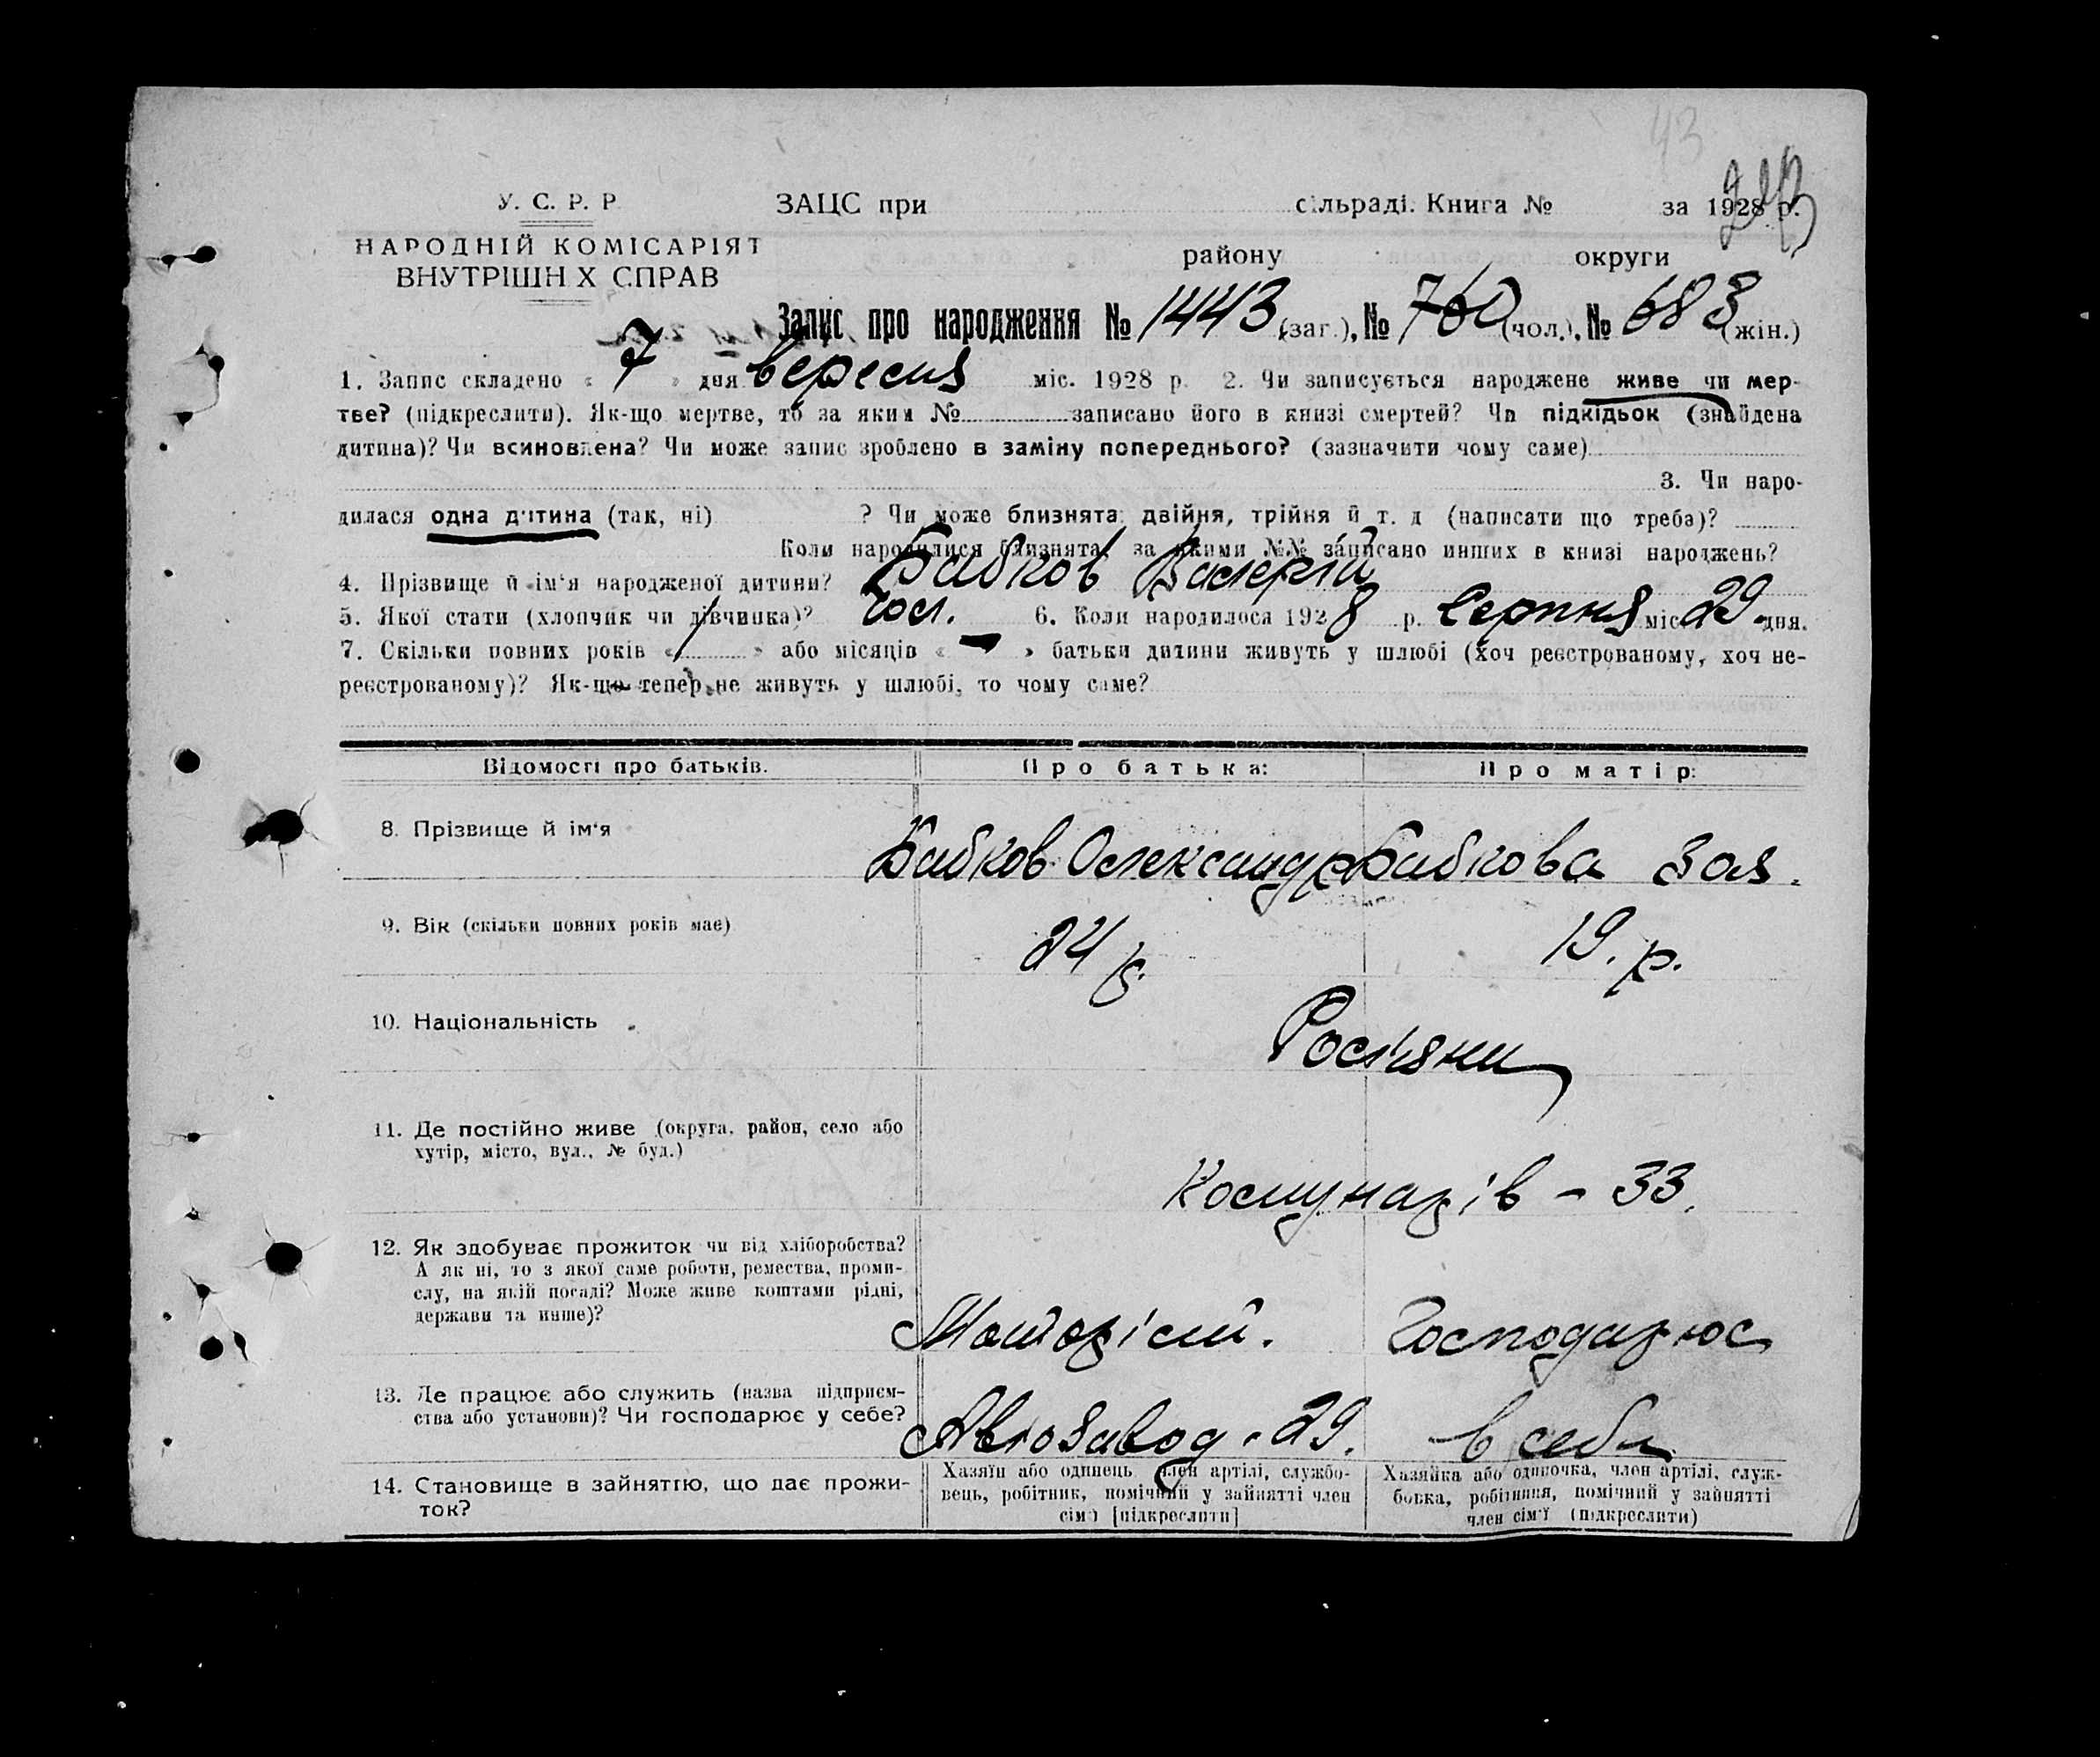 43
У. С. Р. Р. ЗАЦС при сільраді. Книга № за 1928 р.
НАРОДНІЙ КОМІСАРІЯТ
ВНУТРІШН Х СПРАВ
району округи
Запис про народження № 1443 (заг.), № 760 (чол.), № 683 (жін.)
1. Запис складено « 7 » дня вересня міс. 1928 р. 2. Чи записується народжене живе чи мер-
тве? (підкреслити). Як-що мертве, то за яким № записано його в книзі смертей? Чи підкідьок (знайдена
дитина)? Чи всиновлена? Чи може запис зроблено в заміну попереднього? (зазначити чому саме)
3. Чи наро-
дилася одна дитина (так, ні) ? Чи може близнята: двійня, трійня й т. д (написати що треба)?
Коли народилися близнята, за якими №№ записано инших в книзі народжень?
4. Прізвище й ім'я народженої дитини? Бабков Валерій
5. Якої стати (хлопчик чи дівчинка)? чол. 6. Коли народилося 1928 р. Серпня міс. 29 дня.
7. Скільки повних років « 1 » або місяців « – » батьки дитини живуть у шлюбі (хоч реєстрованому, хоч не-
реєстрованому)? Як-що тепер не живуть у шлюбі, то чому саме?
Відомості про батьків. Про батька: Про матір:
8. Прізвище й ім'я Бабков Олександр Бабкова Зоя.
9. Вік (скільки повних років має) 24 р. 19. р.
10. Національність Росіяни
11. Де постійно живе (округа, район, село або
хутір, місто, вул., № буд.)
Комунарів – 33.
12. Як здобуває прожиток чи від хліборобства?
А як ні, то з якої саме роботи, ремества, проми-
слу, на якій посаді? Може живе коштами рідні,
держави та инше)?
Моторіст. Господарює
13. Де працює або служить (назва підприєм-
ства або установи)? Чи господарює у себе?
Автозавод - 29. в себе
14. Становище в зайняттю, що дає прожи-
ток?
Хазяїн або одинець, член артілі, службо-
вець, робітник, помічний у зайнятті член
сім'ї [підкреслити]
Хазяйка або одиночка, член артілі, служ-
бовка, робітниця, помічний у зайнятті
член сім'ї (підкреслити)